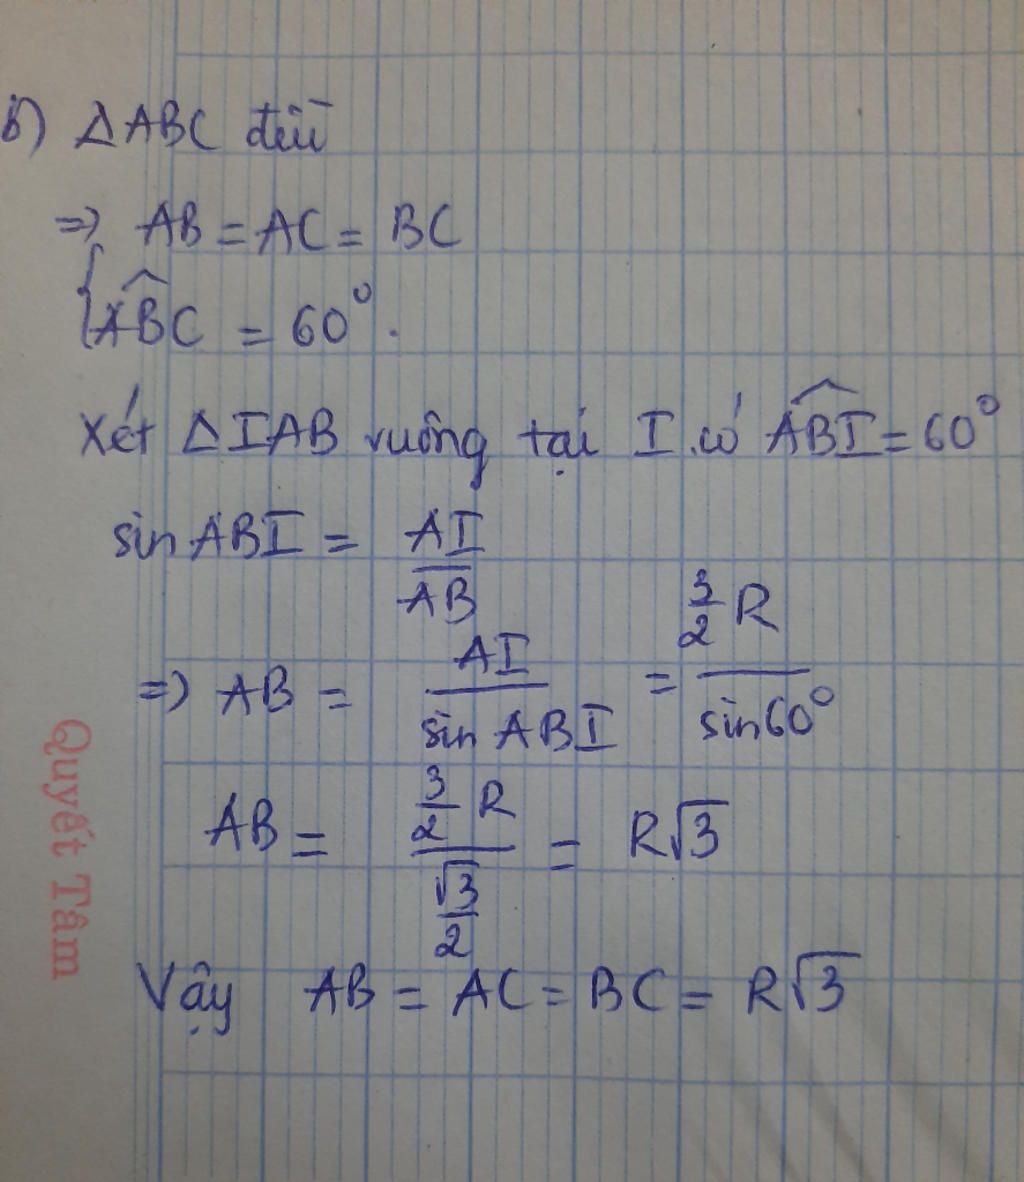 b) ΔABC đều
=> AB = AC = BC
{ABC = 60°.
Xét ΔIAB vuông tại I có ABI = 60°
sin ABI = AI/AB
=> AB = AI/sin ABI = 3/2 R/sin60°
AB = 3/2 R/√3/2 = R√3
Vậy AB = AC = BC = R√3
Quyết Tâm